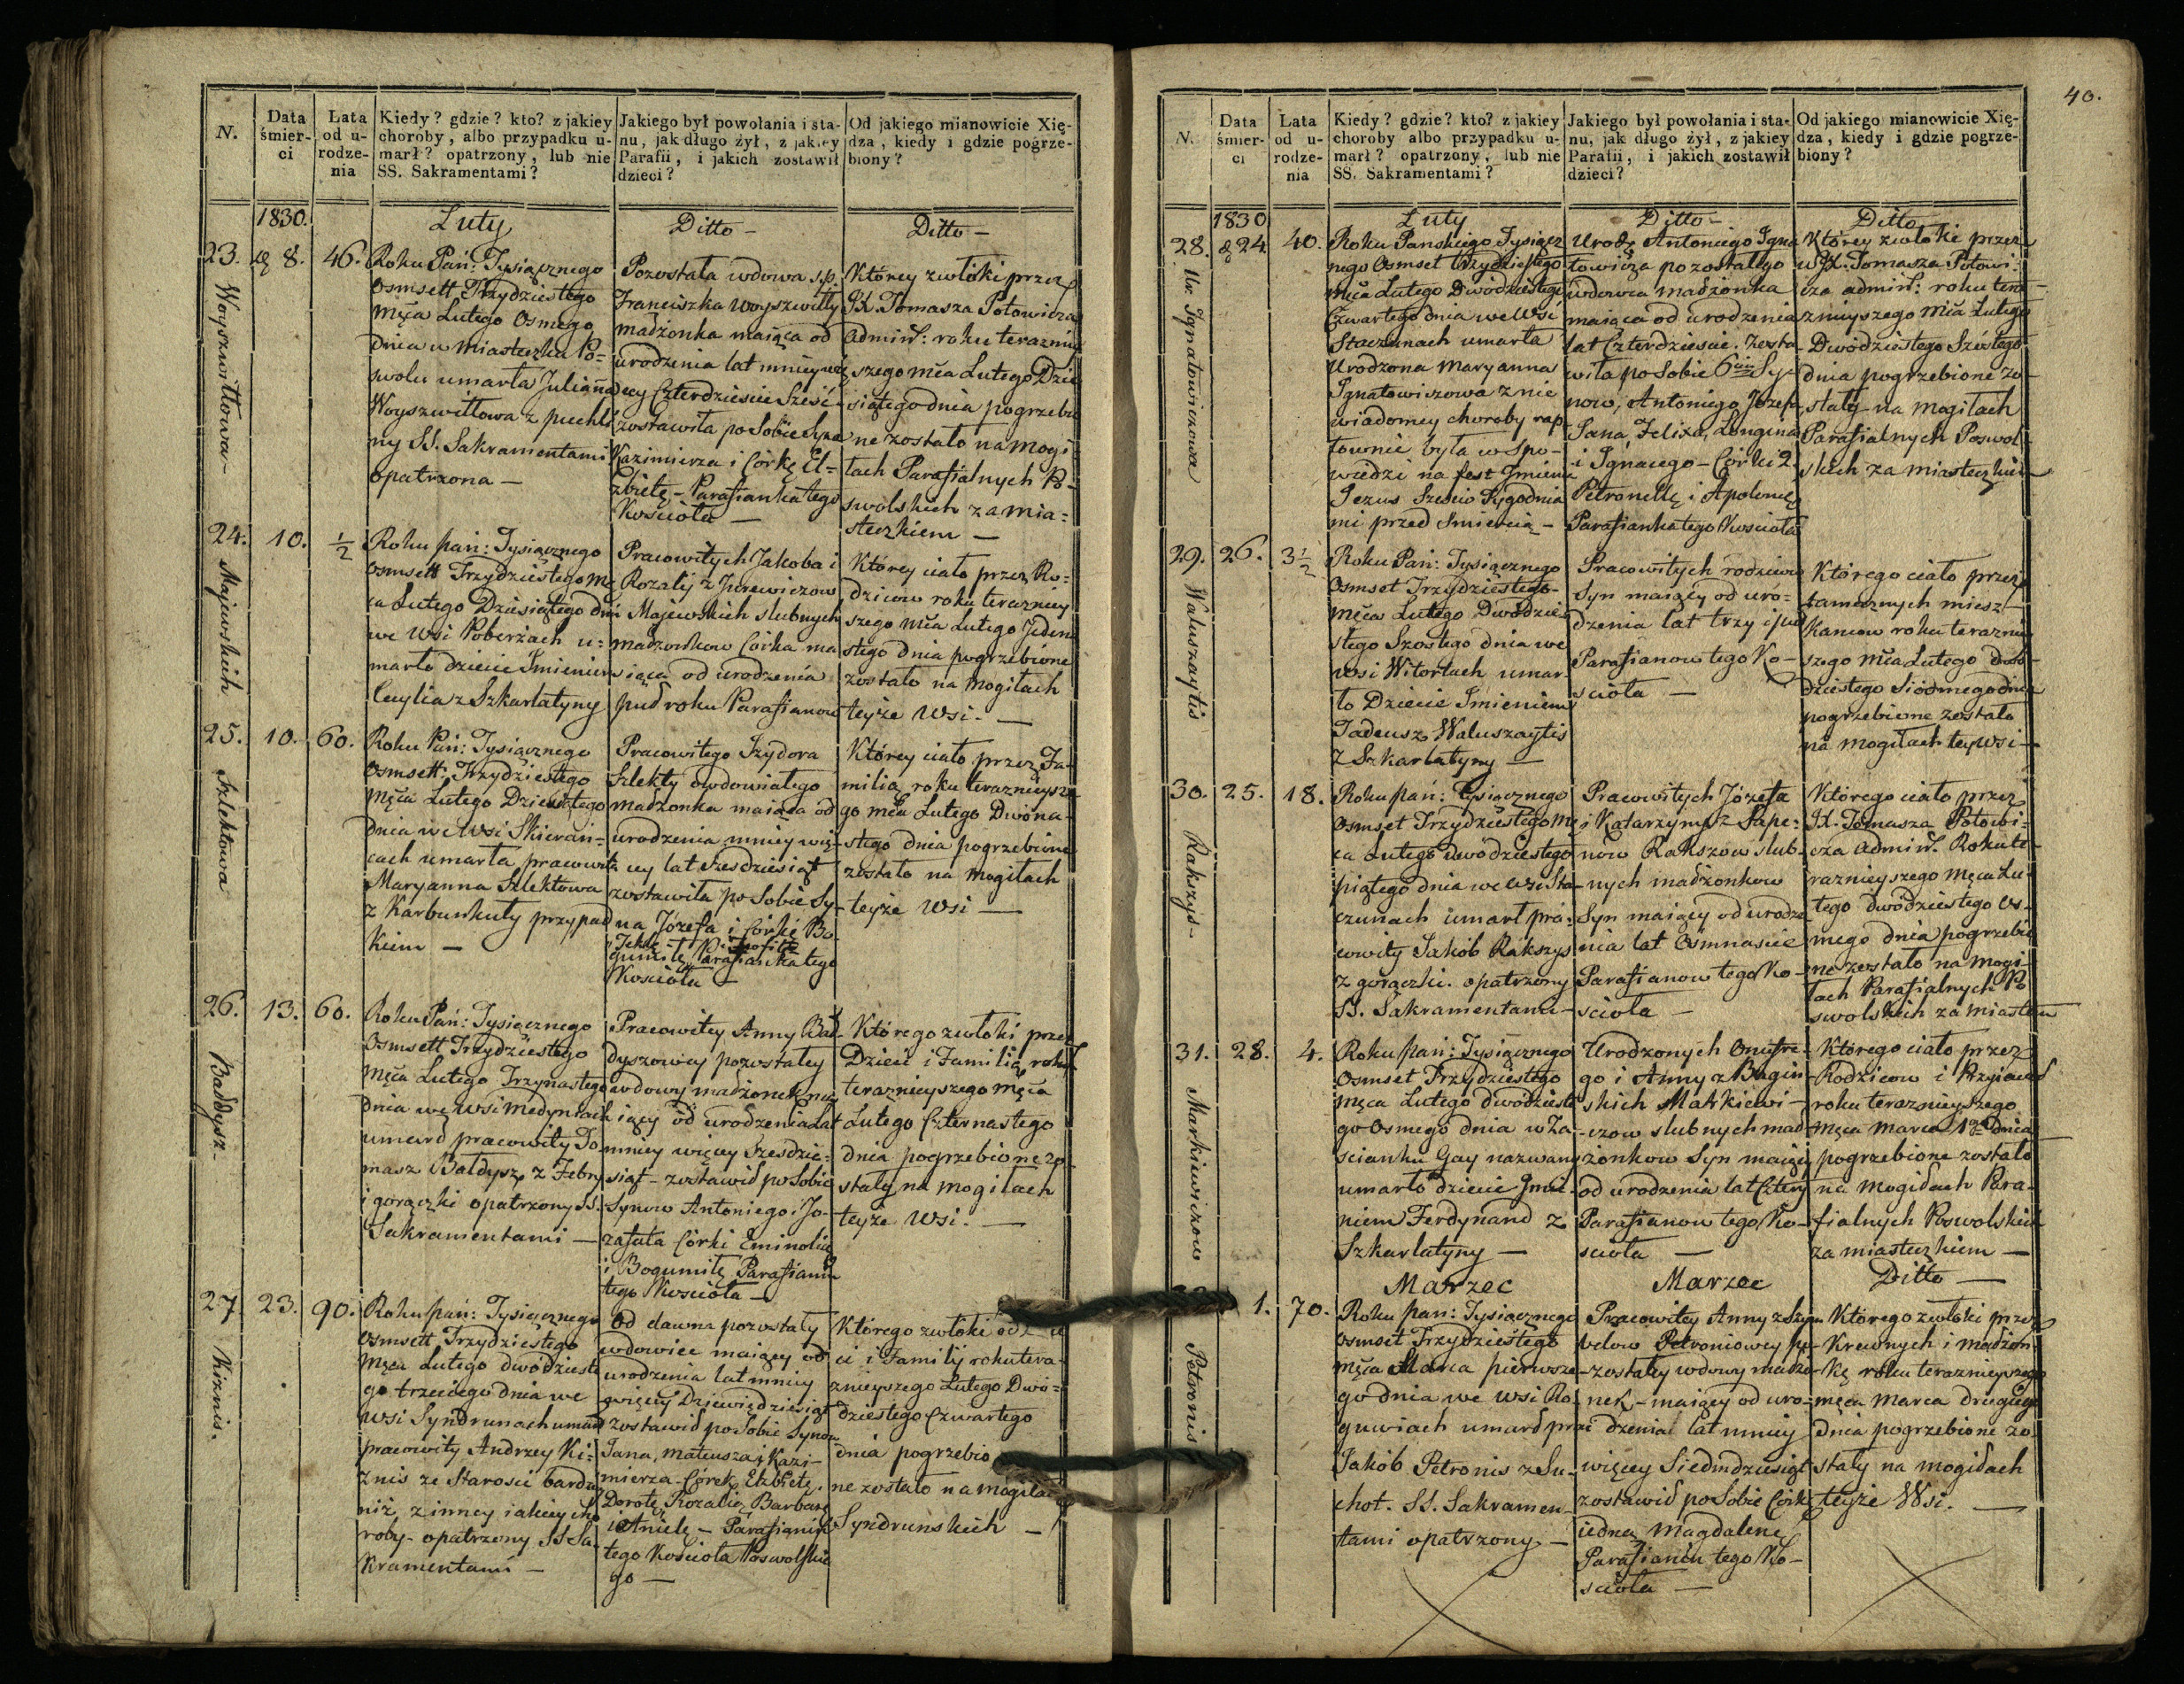 N.
Data śmier- ci
Lata od u- rodze- nia
Kiedy? gdzie? kto? z jakiey
choroby, albo przypadku u-
marł? opatrzony, lub nie
SS. Sakramentami?
Jakiego był powołania i sta-
nu, jak długo żył, z jakiey
Parafii, i jakich zostawił
dzieci?
Od jakiego mianowicie Xię-
dza, kiedy i gdzie pogrze-
biony?
1830.
Luty
Ditto –
Ditto –
23.
8.
46.
Woyszwiłłowa –
Roku Pań: Tysiącznego
Osmsett Trzydziestego
Męca Lutego Osmego
dnia w Miasteczku Po=
swolu umarła Julianna
Woyszwiłłowa z puchli
ny SS. Sakramentami
opatrzona –
Pozostała wdowa s.p.
Franciszka Woyszwiłły
madżonka maiąca od
urodzenia lat mniey wię
cey Czterdziescie Sześć
zostawiła po Sobie Syna
Kazimierza i Córkę El=
zbietę – Parafianka tego
Kościoła –
Którey zwłoki przez
JX. Tomasza Potowicza
Admin: roku teraznie
szego Mca Lutego Dzie
siątego dnia pogrzebio
ne zostało na Mogi
łach Parafialnych Po-
swolskich za mia=
steczkiem –
24.
10.
½
Majewskich
Roku pań: Tysiącznego
Osmsett Trzydziestego Mę
ca Lutego Dziesiątego dni
we Wsi Poberżach u=
marło dziecie Imieniem
Cecylia z Szkarlatyny
Pracowitych Jakoba i
Rozalij z Jurewiczow
Majewskich slubnych
madżonkow Córka ma
iąca od urodzenia
puł roku Parafianow
Którey ciało przez Ro=
dzicow roku terazniey
szego Mca Lutego Jedena
stego dnia pogrzebione
zostało na Mogiłach
teyże Wsi. –
25.
10.
60.
Szlektowa
Roku Pań: Tysiącznego
Osmsett Trzydziestego
Męca Lutego Dziesiątego
dnia we Wsi Skieran=
cach umarła pracowita
Maryanna Szlektowa
z Karbunkuły przypad
kiem –
Pracowitego Izydora
Szlekty owdowiałego
madzonka maiąca od
urodzenia mniey wię-
cey lat szesdziesiąt
zostawiła po Sobie Sy-
na Józefa i Córki Bo
gumiłę Parafianka tego
Kościoła –
Którey ciało przez Fa-
milią roku teraznieysze
go mca Lutego Dwona-
stego dnia pogrzebione
zostało na Mogiłach
teyże Wsi –
26.
13.
60.
Bałdysz –
Roku Pań: Tysiącznego
Osmsett Trzydziestego
Męca Lutego Trzynastego
dnia we Wsi Medyniach
umarł pracowity To
masz Bałdysz z Febry
i gorączki opatrzony SS.
Sakramentami –
Pracowitey Anny Bał
dyszowey pozostałey
wdowy madżonek ma
iący od urodzenia Lat
mniey więcey Szesdzie=
siąt – zostawił po Sobie
Synow Antoniego i Jo-
zafata Córki
i Bogumiłę Parafianin
tego Kościoła –
Którego zwłoki przez
Dzieci i Familią roku
teraznieyszego Męca
Lutego Czternastego
dnia pogrzebione zo
stały na Mogiłach
teyże Wsi. –
27.
23.
90.
Kiznis.
Roku pań: Tysiącznego
Osmsett Trzydziestego
Męca Lutego dwodzieste
go trzeciego dnia we
Wsi Syndrunach umarł
pracowity Andrzey Ki=
znis ze Starosci bardzie
niż z inney iakiey cho
roby – opatrzony SS Sa-
kramentami –
Od dawna pozostały
wdowiec maiący od
urodzenia lat mniey
więcey Dziewiędziesiąt
zostawił po Sobie Synow
Jana, Mateusza i Kazi-
mierza – Córek Elzbietę,
Dorotę, Rozalią, Barbarę
i Anielę – Parafianin
tego Kościoła Poswolskie
go –
Którego zwłoki od
ci i Familij roku tera-
znieyszego Lutego Dwo=
dziestego Czwartego
dnia pogrzebio
ne zostało na Mogiłach
Syndrunskich –
40.
N.
Data śmier- ci
Lata od u- rodze- nia
Kiedy? gdzie? kto? z jakiey
choroby albo przypadku u-
marł? opatrzony, lub nie
SS. Sakramentami?
Jakiego był powołania i sta-
nu, jak długo żył, z jakiey
Parafii, i jakich zostawił
dzieci?
Od jakiego mianowicie Xię-
dza, kiedy i gdzie pogrze-
biony?
1830
Luty
Ditto –
Ditto
28.
24
40.
Ur. Ignatowiczowa
Roku Panskiego Tysiącz
nego Osmset trzydziestego
Męca Lutego Dwodziestego
Czwartego dnia we Wsi
Staczunach umarła
Urodzona Maryanna
Ignatowiczowa z nie
wiadomey choroby rap
townie była w Spo-
wiedzi na fest Imienia
Jezus Sześcio Tygodnia
mi przed Smiercią –
Urodz. Antoniego Igna
towicza pozostałego
wdowca madżonka
maiąca od urodzenia
lat Czterdziescie. Zosta
wiła po Sobie 6ciu Sy-
now, Antoniego, Józefa,
Jana, Felixa, Longina
i Ignacego – Córki 2
Petronellę i Apolonię
Parafianka tego Kościoła
Którey zwłoki przez
WJX. Tomasza Potowi-
cza admin: roku tera-
znieyszego Mca Lutego
Dwodziestego Szóstego
dnia pogrzebione zo
stały na Mogiłach
Parafialnych Poswol
skich za miasteczkiem
29.
26.
3½
Waluszaytis
Roku Pań: Tysiącznego
Osmset Trzydziestego
Męca Lutego Dwódzie
stego Szostego dnia we
Wsi Witortach umar-
ło Dziecie Imieniem
Tadeusz Waluszaytis
z Szkarlatyny –
Pracowitych rodzicow
Syn maiący od uro=
dzenia lat trzy i puł
Parafianow tego Ko-
scioła –
Którego ciało przez
tamecznych miesz-
kancow roku terazniey
szego Mca Lutego Dwó-
dziestego Siódmego dnia
pogrzebione zostało
na mogiłach tey wsi –
30.
25.
18.
Rakszys –
Roku pań: Tysiącznego
Osmset Trzydziestego Mę
ca Lutego dwodziestego
piątego dnia we Wsi Sta-
czunach umarł pra-
cowity Jakób Rakszys
z gorączki. opatrzony
SS. Sakramentami –
Pracowitych Józefa
i Katarzyny z Pape-
now Rakszow slub-
nych madżonkow
Syn maiący od urodze
nia lat Osmnascie
Parafianow tego Ko-
scioła –
Którego ciało przez
JX. Tomasza Potowi=
cza Admin. Roku te-
raznieyszego Męca Lu-
tego dwódziestego Os-
mego dnia pogrzebio
ne zostało na Mogi
łach Parafialnych Po
swolskich za miastem
31.
28.
4.
Markiewiczow
Roku pań: Tysiącznego
Osmset Trzydziestego
Męca Lutego dwódzieste
go Osmego dnia w Za-
scianku Gay nazwany
umarło dziecie Imie-
niem Ferdynand z
Szkarlatyny –
Urodzonych Onufre-
go i Anny z Bagin-
skich Markiewi-
czow slubnych mad
żonkow Syn maiący
od urodzenia lat Cztery
Parafianow tego Ko-
scioła –
Którego ciało przez
Rodzicow i Przyiaciół
roku teraznieyszego
Męca Marca 1go Dnia
pogrzebione zostało
na Mogiłach Para-
fialnych Poswolskich
za miasteczkiem –
Marzec
Marzec
Ditto –
1.
70.
Petronis
Roku pan: Tysiącznego
Osmset Trzydziestego
Męca Marca pierwsze
go dnia we Wsi Ro-
guwiach umarł prac
Jakób Petronis z Su-
chot. SS. Sakramen-
tami opatrzony –
Pracowitey Anny z Szym
below Petroniowey po-
zostałey wdowy madżo-
nek – maiący od uro-
dzenia lat mniey
więcey Siedmdziesiąt
zostawił po Sobie Córkę
iedną Magdalenę
Parafianin tego Ko-
scioła –
Którego zwłoki przez
Krewnych i madżon-
kę roku teraznieyszego
męca Marca drugiego
dnia pogrzebione zo
stały na mogiłach
teyże Wsi. –